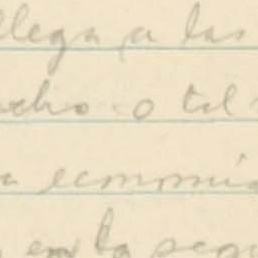 llega a las
cho o tal
a economi
en la segu